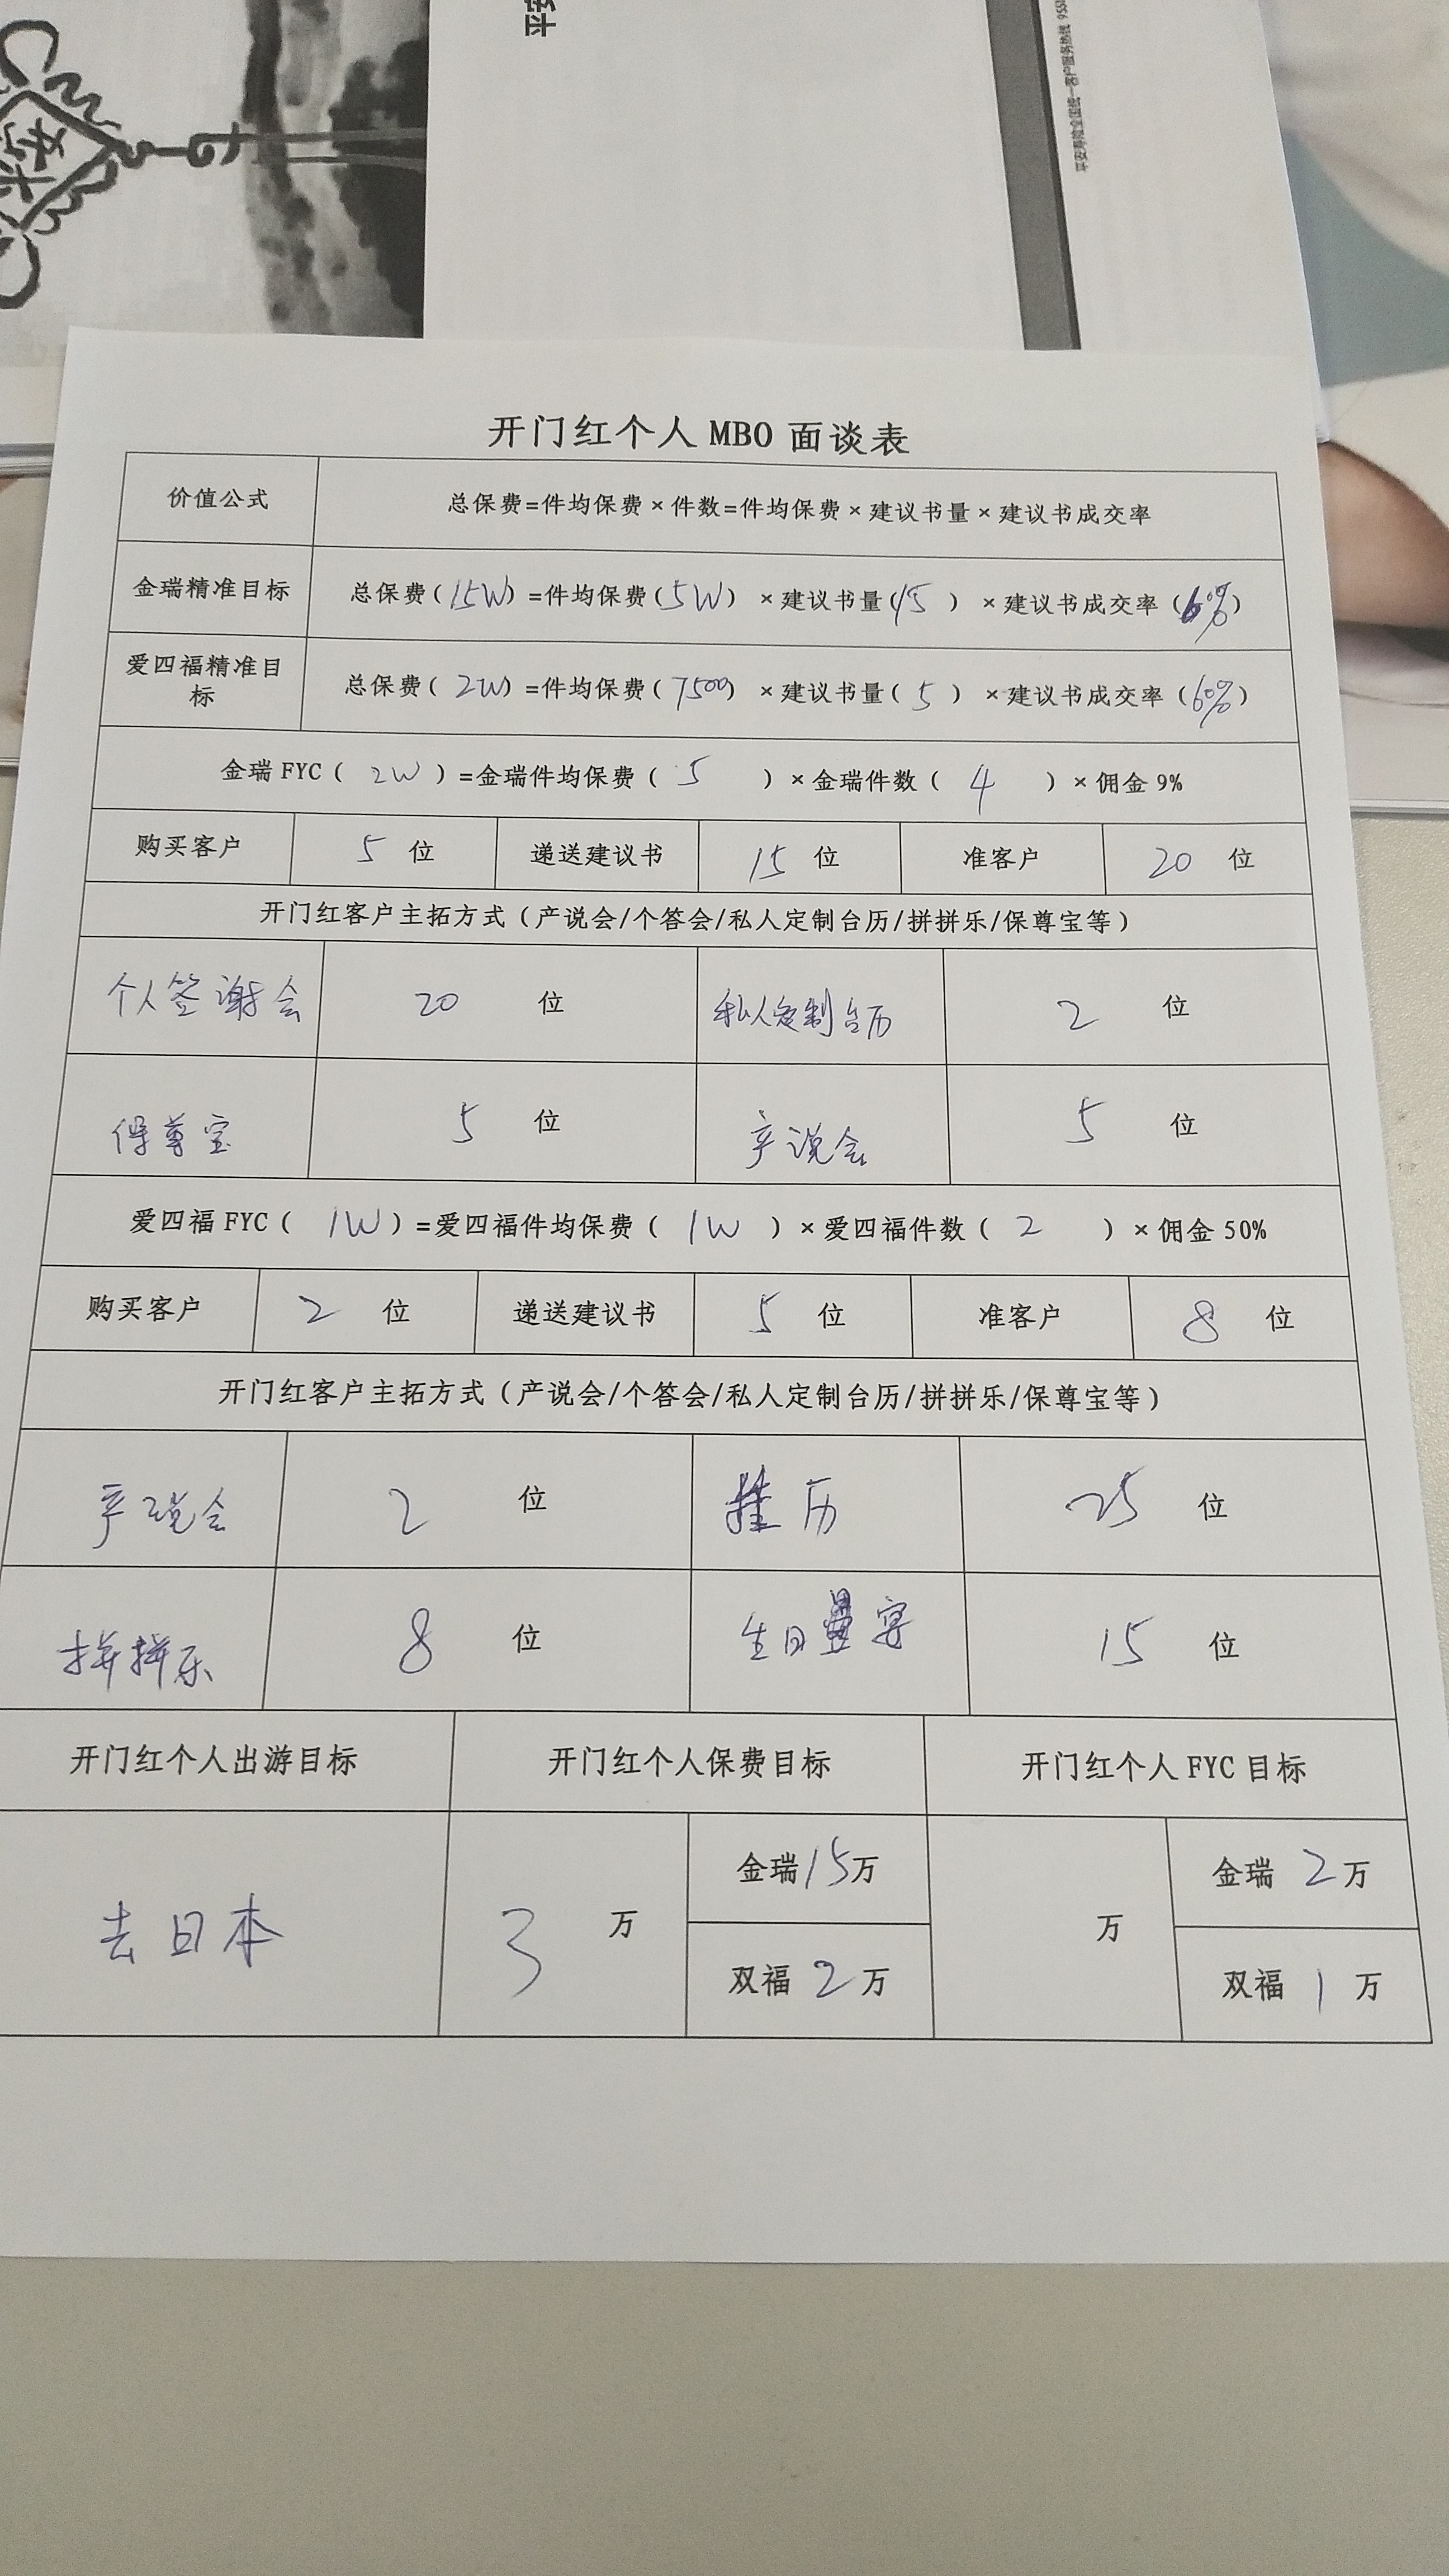 平安寿险全国统一客户服务热线 955
开门红个人 MBO 面谈表
价值公式 总保费=件均保费×件数=件均保费×建议书量×建议书成交率
金瑞精准目标 总保费(15W)=件均保费(5W)×建议书量(15)×建议书成交率(60%)
爱四福精准目标 总保费(2W)=件均保费(7500)×建议书量(5)×建议书成交率(60%)
金瑞 FYC(2W)=金瑞件均保费(5)×金瑞件数(4)×佣金 9%
购买客户 5 位 递送建议书 15 位 准客户 20 位
开门红客户主拓方式(产说会/个答会/私人定制台历/拼拼乐/保尊宝等)
个人答谢会 20 位 私人定制台历 2 位
保尊宝 5 位 产说会 5 位
爱四福 FYC(1W)=爱四福件均保费(1W)×爱四福件数(2)×佣金 50%
购买客户 2 位 递送建议书 5 位 准客户 8 位
开门红客户主拓方式(产说会/个答会/私人定制台历/拼拼乐/保尊宝等)
产说会 2 位 挂历 25 位
拼拼乐 8 位 生日宴 15 位
开门红个人出游目标 开门红个人保费目标 开门红个人 FYC 目标
去日本 3 万 金瑞 15 万 万 金瑞 2 万
双福 2 万 双福 1 万